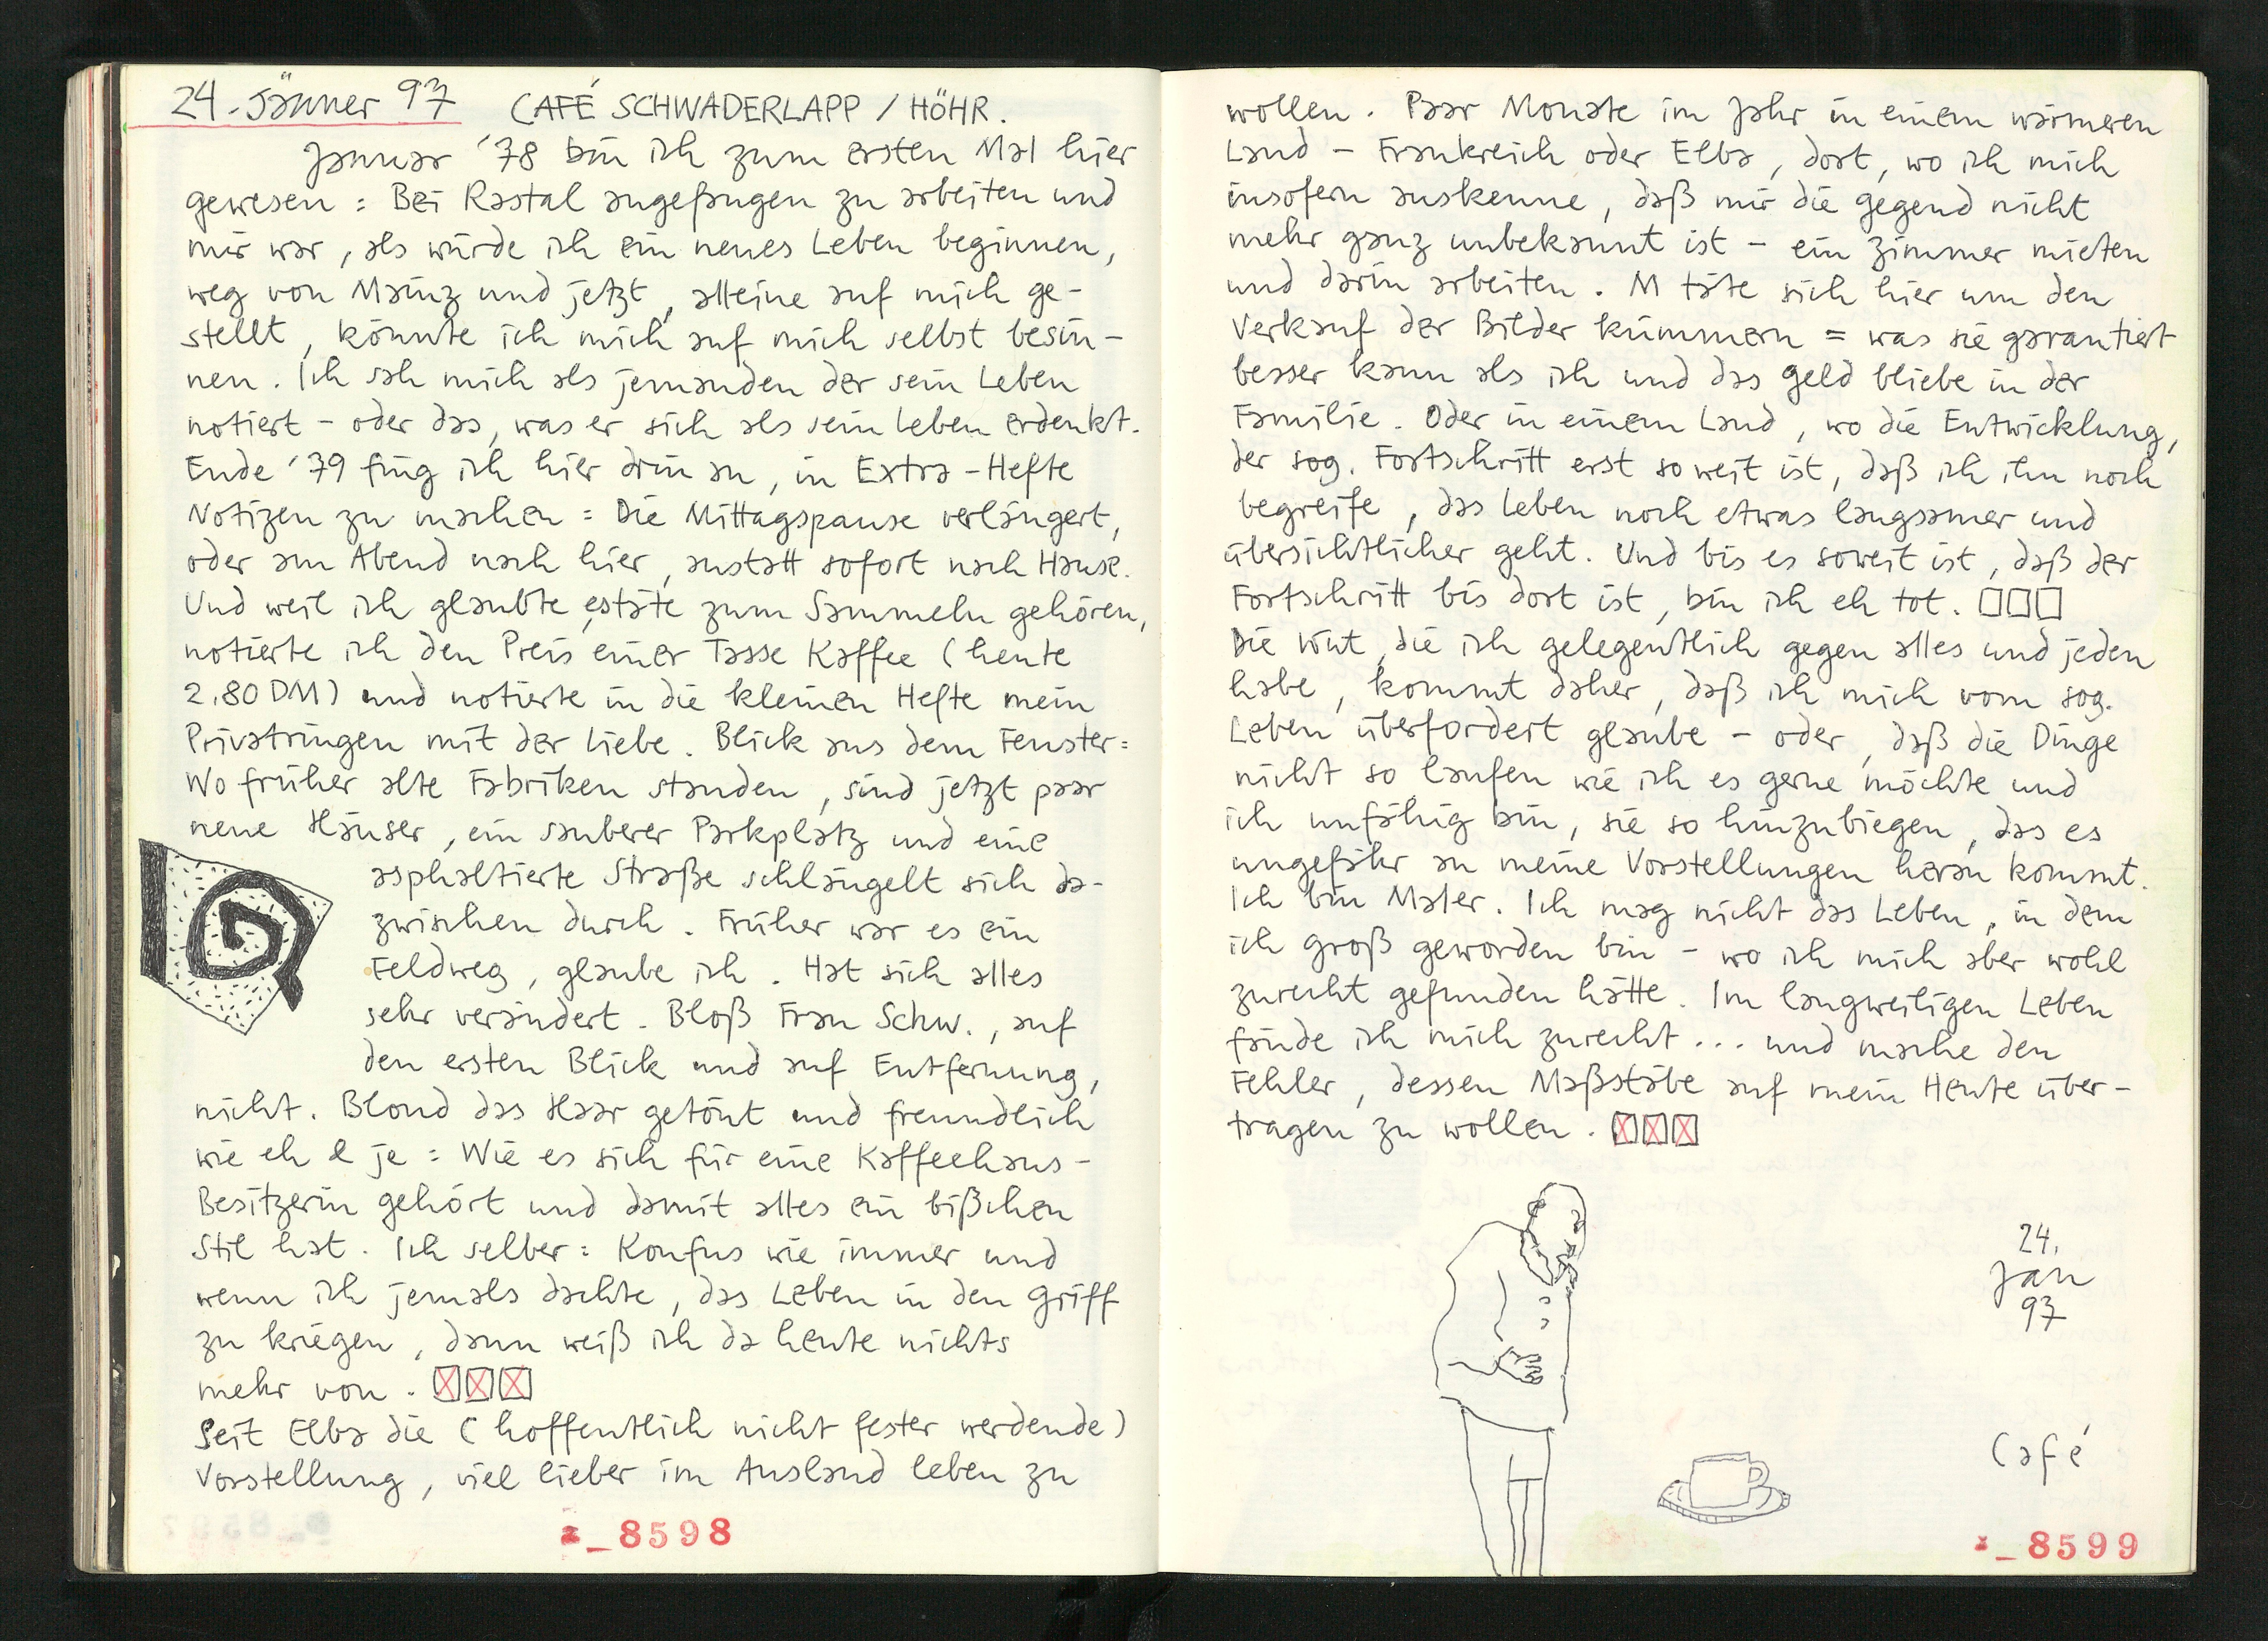 24. Jänner 97 CAFÉ SCHWADERLAPP / HÖHR.
Januar '78 bin ich zum ersten Mal hier
gewesen: Bei Rastal angefangen zu arbeiten und
mir war, als würde ich ein neues Leben beginnen,
weg von Mainz und jetzt, alleine auf mich ge-
stellt, könnte ich mich auf mich selbst besin-
nen. Ich sah mich als jemanden der sein Leben
notiert - oder das, was er sich als sein Leben erdenkt.
Ende '79 fing ich hier drin an, in Extra-Hefte
Notizen zu machen: Die Mittagspause verlängert,
oder am Abend nach hier, anstatt sofort nach Hause.
Und weil ich glaubte, es täte zum Sammeln gehören,
notierte ich den Preis einer Tasse Kaffee (heute
2.80 DM) und notierte in die kleinen Hefte mein
Privatringen mit der Liebe. Blick aus dem Fenster:
Wo früher alte Fabriken standen, sind jetzt paar
neue Häuser, ein sauberer Parkplatz und eine
asphaltierte Straße schlängelt sich da-
zwischen durch. Früher war es ein
Feldweg, glaube ich. Hat sich alles
sehr verändert. Bloß Frau Schw., auf
den ersten Blick und auf Entfernung,
nicht. Blond das Haar getönt und freundlich
wie eh & je: Wie es sich für eine Kaffeehaus-
Besitzerin gehört und damit alles ein bißchen
Stil hat. Ich selber: Konfus wie immer und
wenn ich jemals dachte, das Leben in den Griff
zu kriegen, dann weiß ich da heute nichts
mehr von.
Seit Elba die (hoffentlich nicht fester werdende)
Vorstellung, viel lieber im Ausland leben zu
8598
wollen. Paar Monate im Jahr in einem wärmeren
Land - Frankreich oder Elba, dort, wo ich mich
insofern auskenne, daß mir die Gegend nicht
mehr ganz unbekannt ist - ein Zimmer mieten
und darin arbeiten. M täte sich hier um den
Verkauf der Bilder kümmern = was sie garantiert
besser kann als ich und das Geld bliebe in der
Familie. Oder in einem Land, wo die Entwicklung,
der sog. Fortschritt erst so weit ist, daß ich ihn noch
begreife, das Leben noch etwas langsamer und
übersichtlicher geht. Und bis es soweit ist, daß der
Fortschritt bis dort ist, bin ich eh tot.
Die Wut, die ich gelegentlich gegen alles und jeden
habe, kommt daher, daß ich mich vom sog.
Leben überfordert glaube - oder, daß die Dinge
nicht so laufen wie ich es gerne möchte und
ich unfähig bin, sie so hinzubiegen, das es
ungefähr an meine Vorstellungen heran kommt.
Ich bin Maler. Ich mag nicht das Leben, in dem
ich groß geworden bin - wo ich mich aber wohl
zurecht gefunden hätte. Im langweiligen Leben
fände ich mich zurecht... und mache den
Fehler, dessen Maßstäbe auf mein Heute über-
tragen zu wollen.
24.
Jan
97
Café
8599